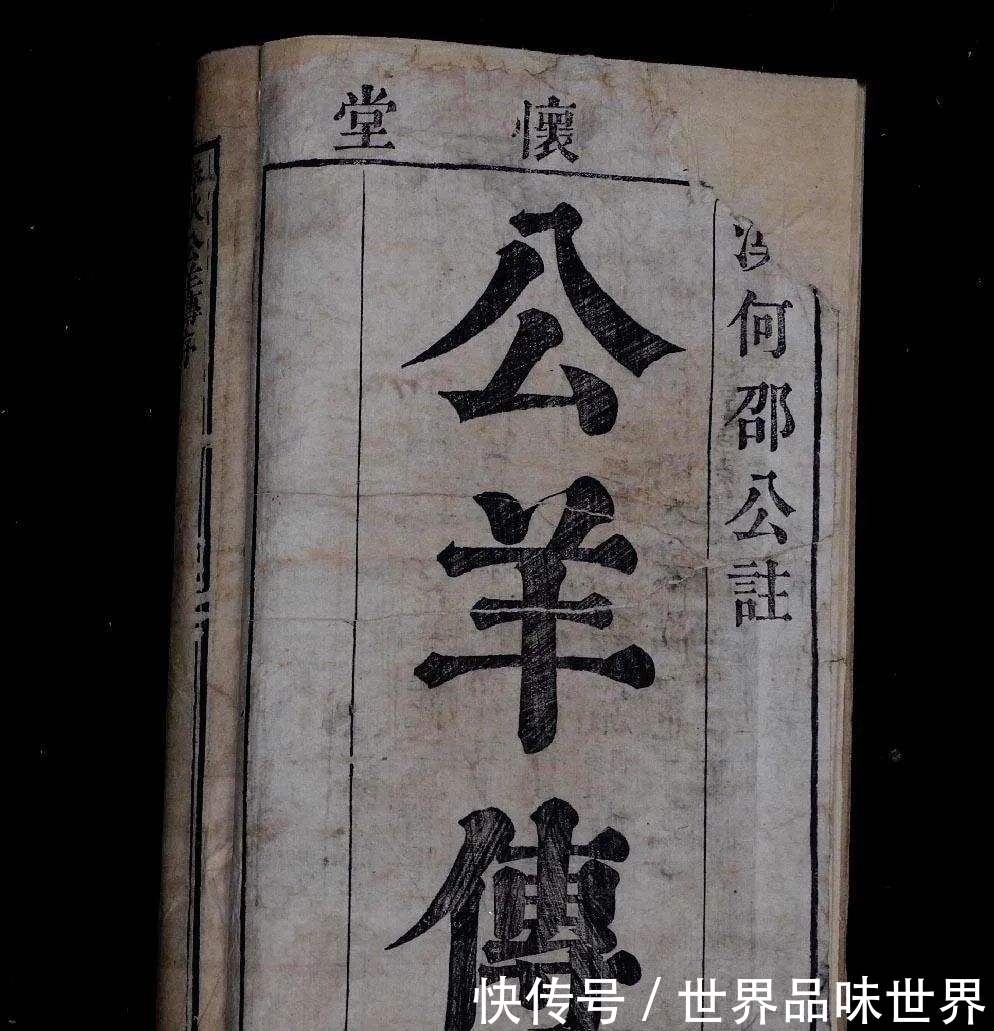 懷堂
何邵公註
公羊傳
快传号 / 世界品味世界